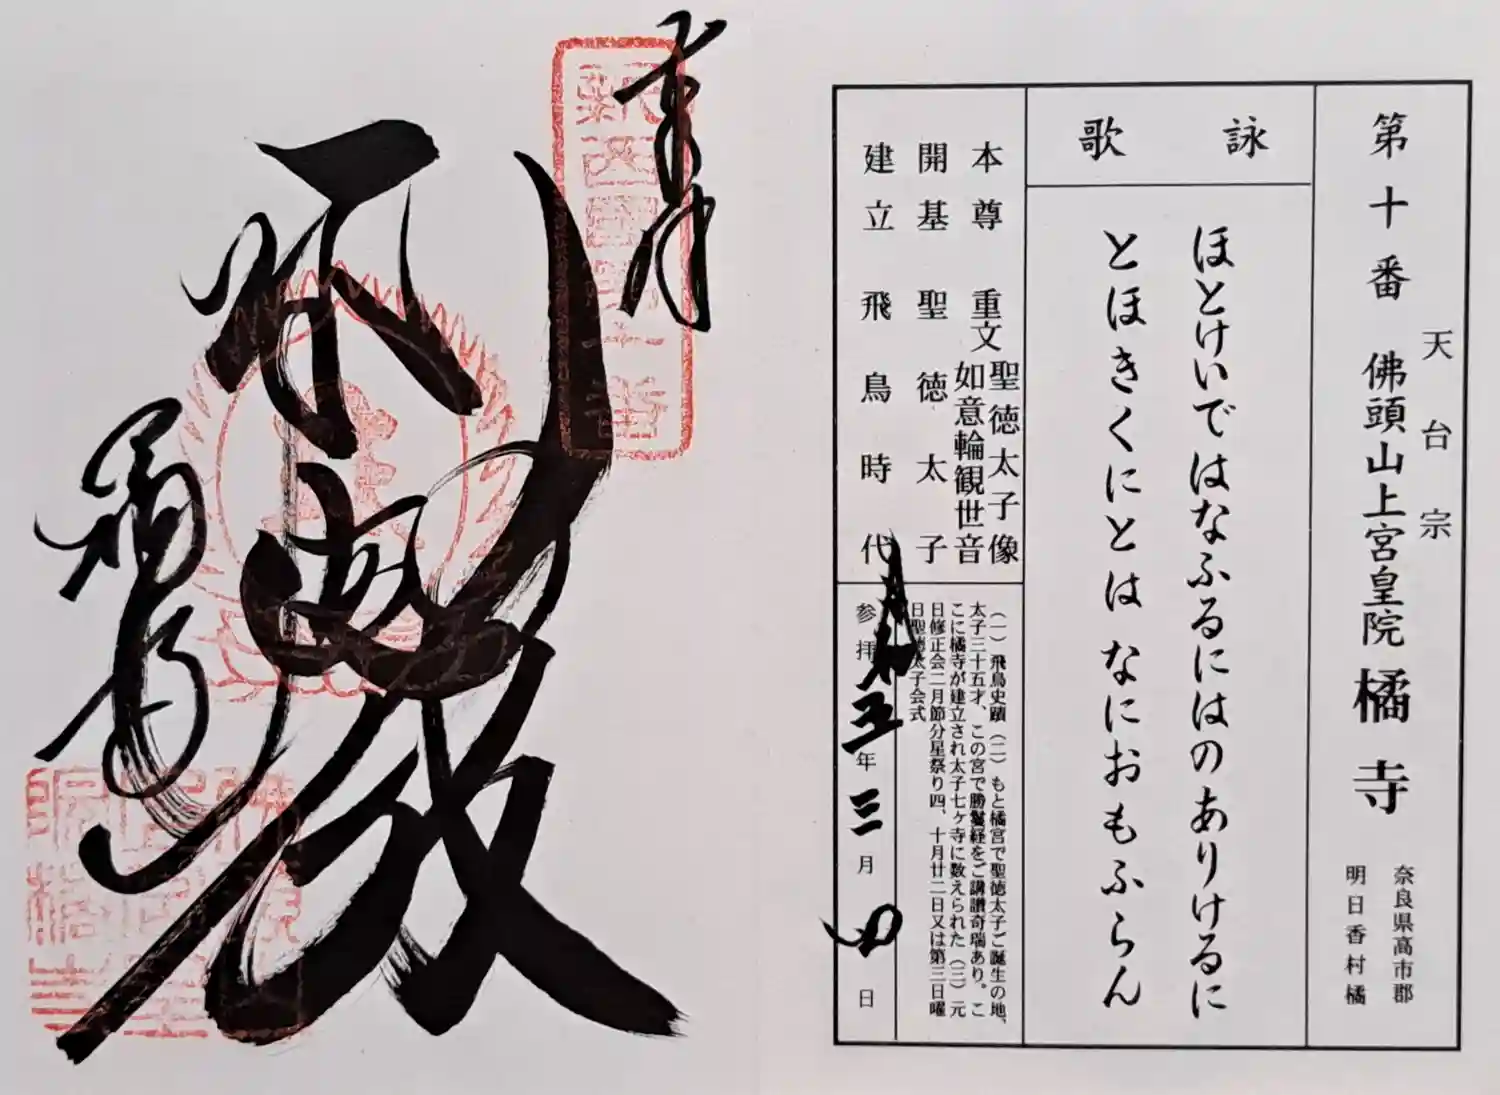 奉拝
橘寺
第十番 佛頭山上宮皇院 橘寺
天台宗
奈良県高市郡
明日香村橘
詠歌
ほとけいではなふるにはのありけるに
とほきくにとは なにおもふらん
本尊 重文 聖徳太子像
如意輪観世音
開基 聖徳太子
建立 飛鳥時代
(一)飛鳥史蹟(二)もと橘宮で聖徳太子ご誕生の地、
太子三十五才、この宮で勝鬘経をご講讃奇瑞あり。こ
こに橘寺が建立され太子七ヶ寺に数えられた(三)元
日修正会二月節分星祭り四、十月廿二日又は第三日曜
日聖徳太子会式
参拝 令和五年三月四日